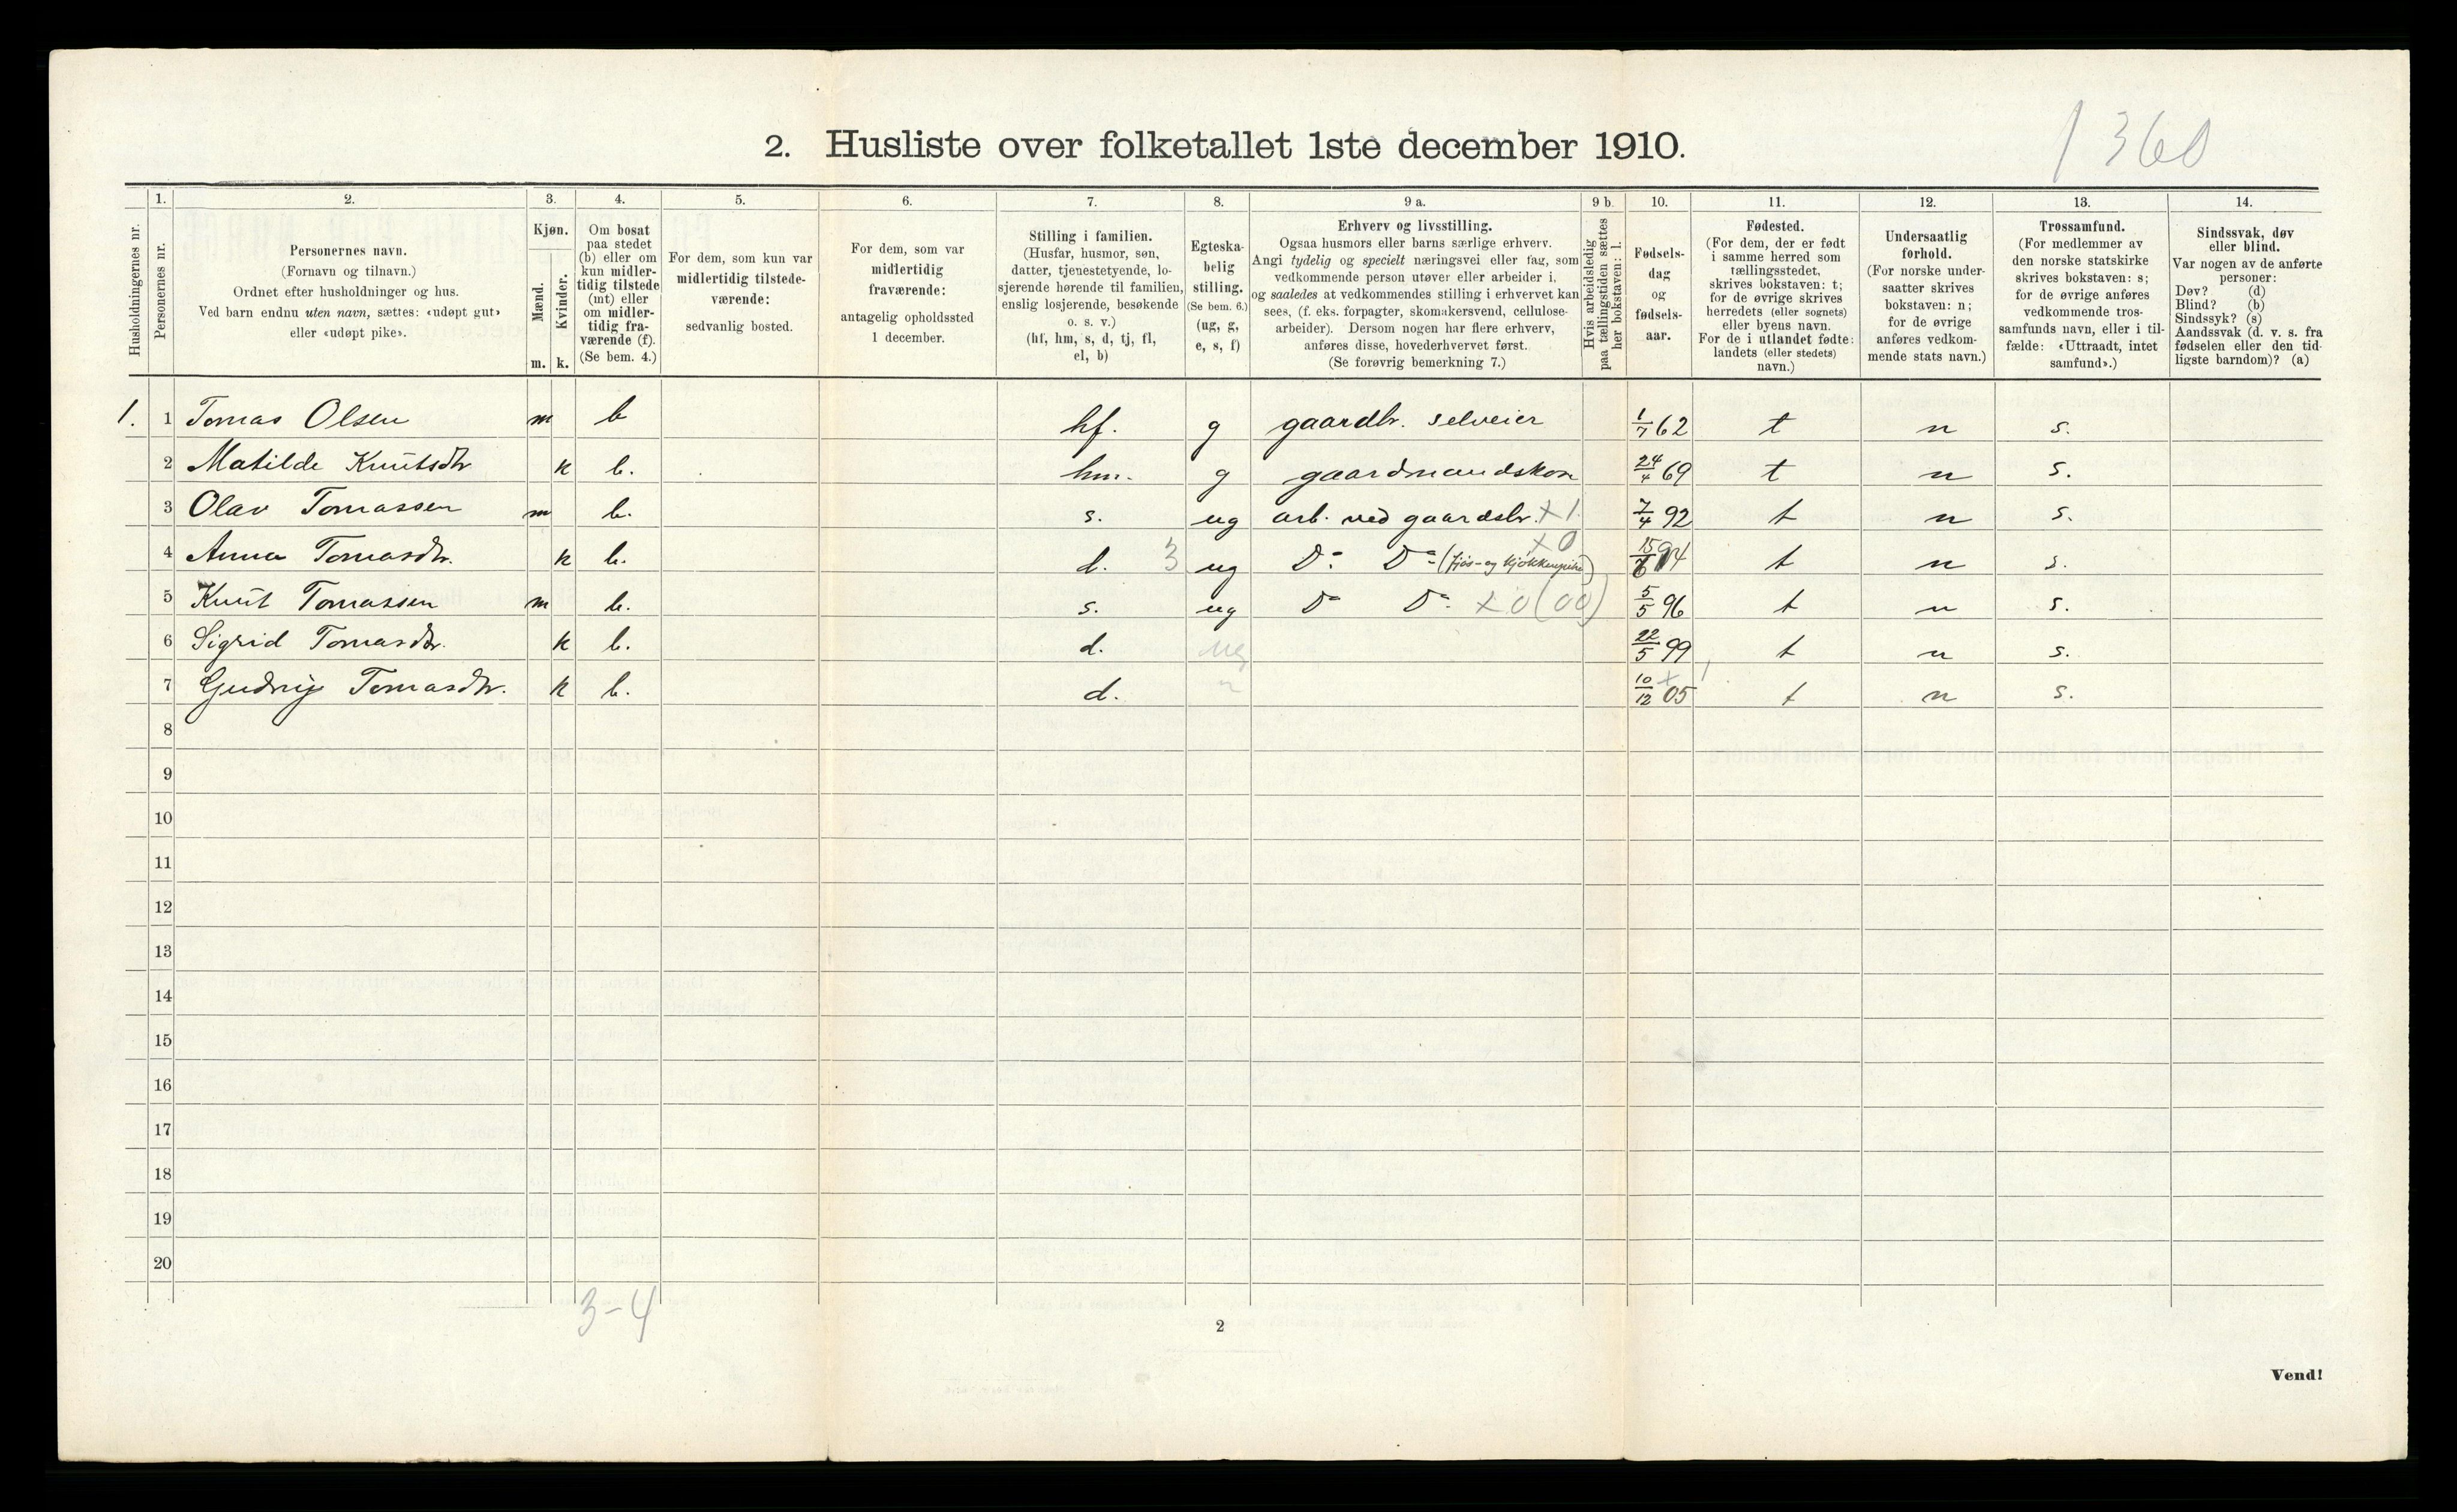 1360
2. Husliste over folketallet 1ste december 1910.
Husholdningernes nr.
1.
Personernes nr.
2.
Personernes navn.
(Fornavn og tilnavn.)
Ordnet efter husholdninger og hus.
Ved barn endnu uten navn, sættes: «udøpt gut»
eller «udøpt pike».
3.
Kjøn.
Mænd.
Kvinder.
m. k.
4.
Om bosat
paa stedet
(b) eller om
kun midler-
tidig tilstede
(mt) eller
om midler-
tidig fra-
værende (f).
(Se bem. 4.)
5.
For dem, som kun var
midlertidig tilstede-
værende:
sedvanlig bosted.
6.
For dem, som var
midlertidig
fraværende:
antagelig opholdssted
1 december.
7.
Stilling i familien.
(Husfar, husmor, søn,
datter, tjenestetyende, lo-
sjerende hørende til familien,
enslig losjerende, besøkende
o. s. v.)
(hf, hm, s, d, tj, fl,
el, b)
8.
Egteska-
belig
stilling.
(Se bem. 6.)
(ug, g,
e, s, f)
9 a.
Erhverv og livsstilling.
Ogsaa husmors eller barns særlige erhverv.
Angi tydelig og specielt næringsvei eller fag, som
vedkommende person utøver eller arbeider i,
og saaledes at vedkommendes stilling i erhvervet kan
sees, (f. eks. forpagter, skomakersvend, cellulose-
arbeider). Dersom nogen har flere erhverv,
anføres disse, hovederhvervet først.
(Se forøvrig bemerkning 7.)
9 b.
Hvis arbeidsledig
paa tællingstiden sættes
her bokstaven: l.
10.
Fødsels-
dag
og
fødsels-
aar.
11.
Fødested.
(For dem, der er født
i samme herred som
tællingsstedet,
skrives bokstaven: t;
for de øvrige skrives
herredets (eller sognets)
eller byens navn.
For de i utlandet fødte:
landets (eller stedets)
navn.)
12.
Undersaatlig
forhold.
(For norske under-
saatter skrives
bokstaven: n;
for de øvrige
anføres vedkom-
mende stats navn.)
13.
Trossamfund.
(For medlemmer av
den norske statskirke
skrives bokstaven: s;
for de øvrige anføres
vedkommende tros-
samfunds navn, eller i til-
fælde: «Uttraadt, intet
samfund».)
14.
Sindssvak, døv
eller blind.
Var nogen av de anførte
personer:
Døv? (d)
Blind? (b)
Sindssyk? (s)
Aandssvak (d. v. s. fra
fødselen eller den tid-
ligste barndom)? (a)
1. 1 Tomas Olsen m b hf. g gaardbr. selveier 1/7 62 t n s.
2 Matilde Knutsdtr k b. hm. g gaardmandskone 24/4 69 t n s.
3 Olav Tomassen m b. s. ug arb. ved gaardsbr. x1. 7/4 92 t n s.
4 Anna Tomasdtr. k b. d. 3 ug Do Do (fjøs- og kjøkkenpike) x0 15/6 94 t n s.
5 Knut Tomassen m b. s. ug Do Do. x0 (00) 5/5 96 t n s.
6 Sigrid Tomasdtr. k b. d. ug 22/5 99 t n s.
7 Gudrig Tomasdtr. k b. d. 10/12 05 t n s.
8
9
10
11
12
13
14
15
16
17
18
19
20
3-4
2
Vend!